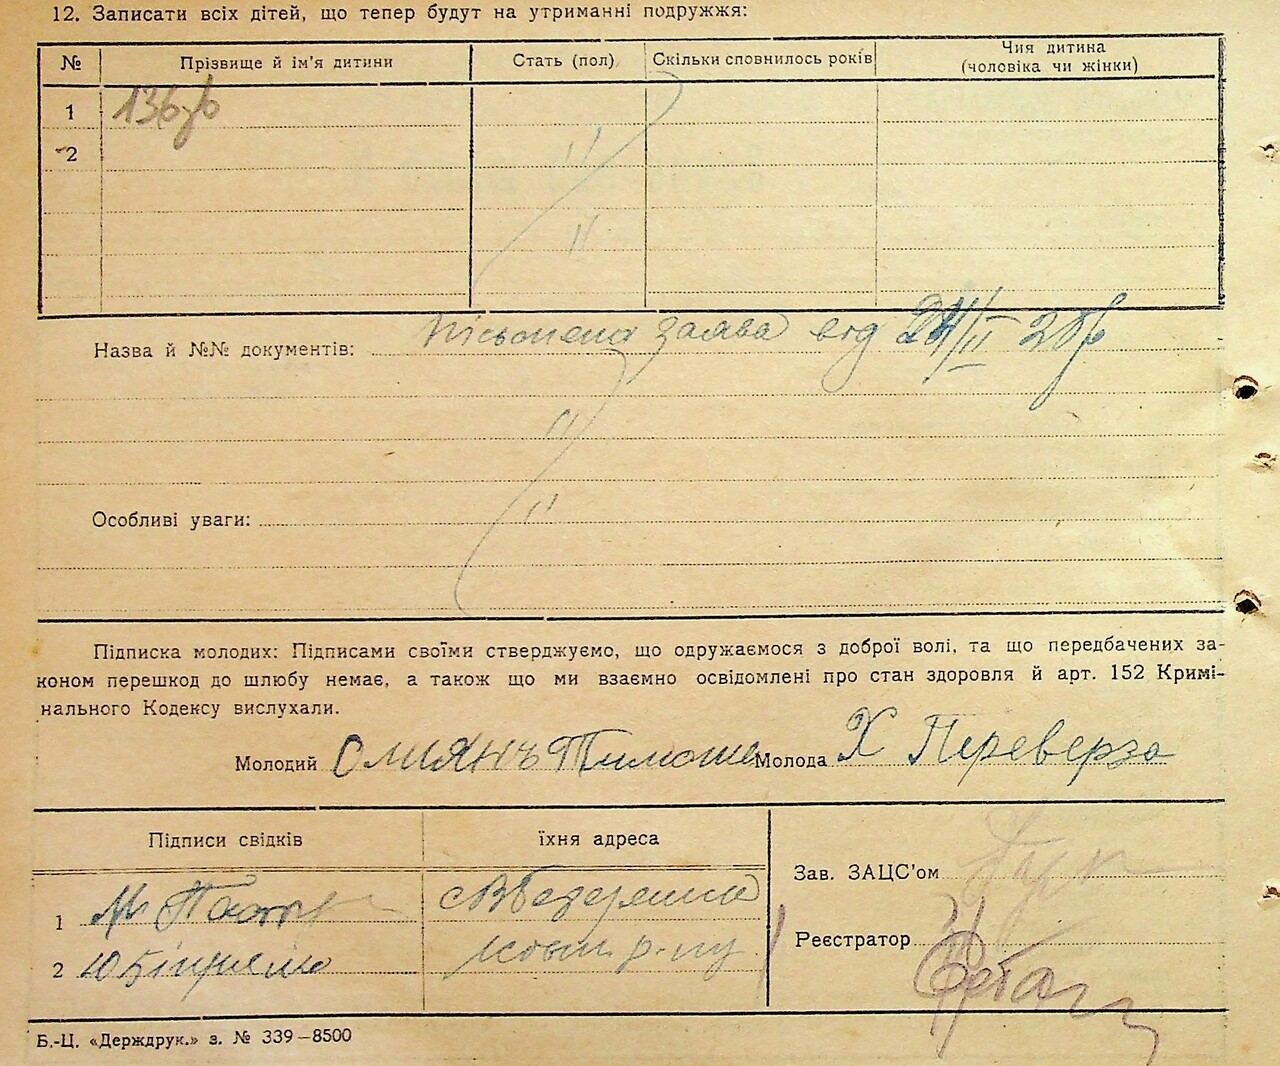 12. Записати всіх дітей, що тепер будут на утриманні подружжя:
№ Прізвище й ім'я дитини Стать (пол) Скільки сповнилось років Чия дитина (чоловіка чи жінки)
1
2
Назва й №№ документів: пісьмена заява від
Особливі уваги:
Підписка молодих: Підписами своїми стверджуємо, що одружаємося з доброї волі, та що передбачених за-
коном перешкод до шлюбу немає, а також що ми взаємно освідомлені про стан здоровля й арт. 152 Кримі-
нального Кодексу вислухали.
Молодий Омиянъ Тимоше Молода Х Переверза
Підписи свідків їхня адреса
Зав. ЗАЦС'ом
1
Реєстратор
2
Б.-Ц. «Держдрук.» з. № 339—8500